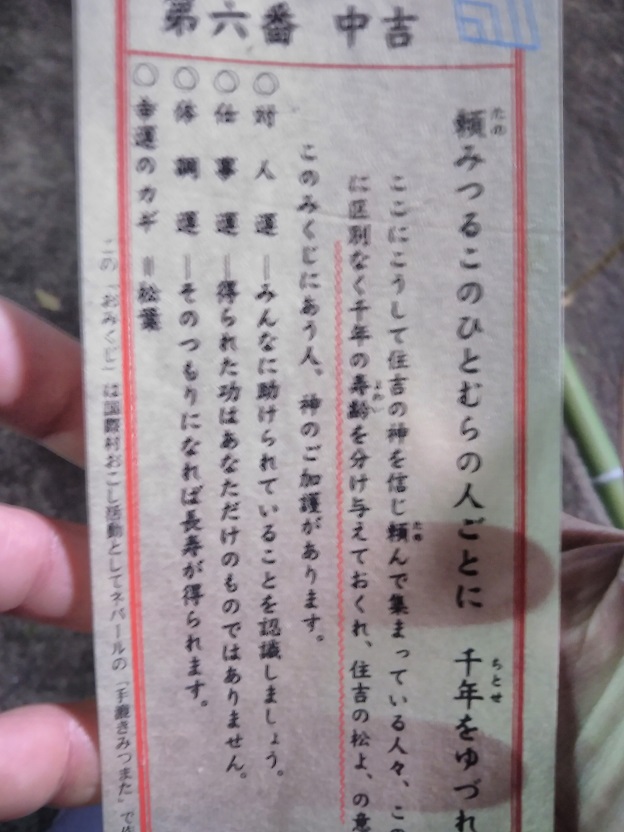 第六番 中吉
頼みつるこのひとむらの人ごとに 千年をゆづれ
たの
ちとせ
ここにこうして住吉の神を信じ頼んで集まっている人々、この
たの
に区別なく千年の寿齢を分け与えておくれ、住吉の松よ、の意
よわい
このみくじにあう人、神のご加護があります。
○対人運―みんなに助けられていることを認識しましょう。
○仕事運―得られた功はあなただけのものではありません。
○体調運―そのつもりになれば長寿が得られます。
○幸運のカギ=松葉
この「おみくじ」は国際村おこし活動としてネパールの「手漉きみつまた」で